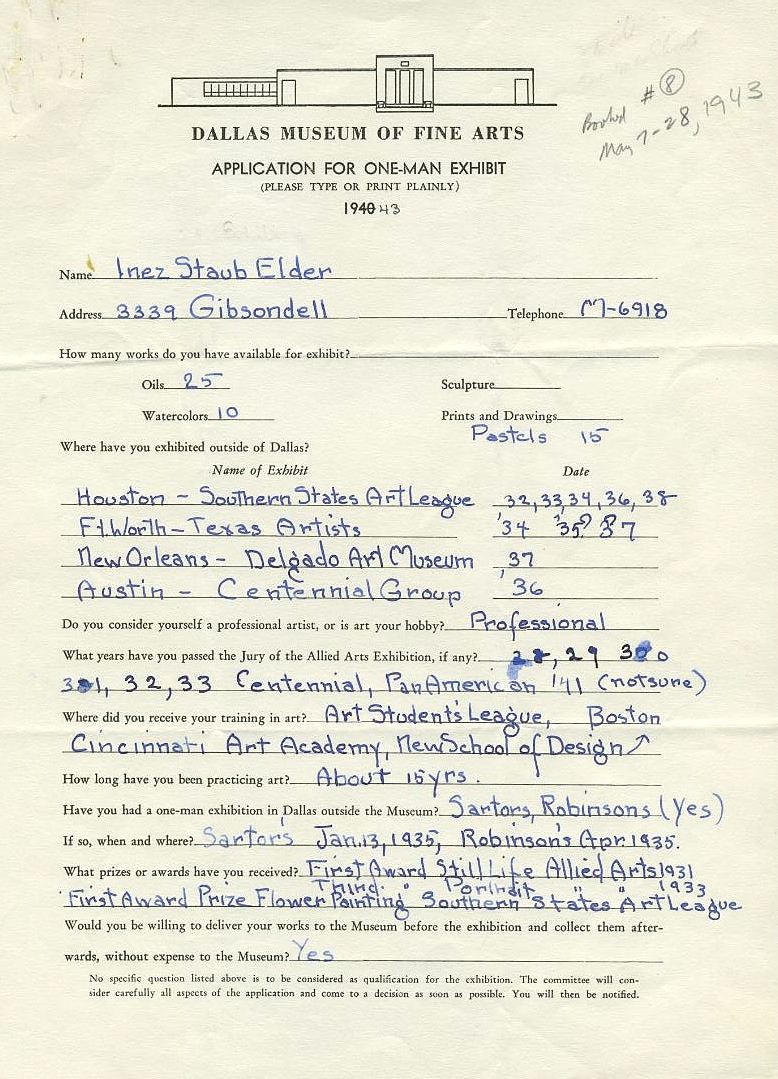 Booked # 8
May 7-28, 1943
DALLAS MUSEUM OF FINE ARTS
APPLICATION FOR ONE-MAN EXHIBIT
(PLEASE TYPE OR PRINT PLAINLY)
1940 43
Name Inez Staub Elder
Address 3339 Gibsondell Telephone M-6918
How many works do you have available for exhibit?
Oils 25 Sculpture
Watercolors 10 Prints and Drawings
Pastels 15
Where have you exhibited outside of Dallas?
Name of Exhibit Date
Houston - Southern States Art League 32, 33, 34, 36, 38
Ft. Worth - Texas Artists '34 '35? 37
New Orleans - Delgado Art Museum 37
Austin - Centennial Group '36
Do you consider yourself a professional artist, or is art your hobby? Professional
What years have you passed the Jury of the Allied Arts Exhibition, if any? 28, 29 30
31, 32, 33 Centennial, PanAmerican '41 (not sure)
Where did you receive your training in art? Art Students' League, Boston
Cincinnati Art Academy, New School of Design ↗
How long have you been practicing art? About 15 yrs.
Have you had a one-man exhibition in Dallas outside the Museum? Sartors, Robinsons (Yes)
If so, when and where? Sartor's Jan. 13, 1935, Robinson's Apr. 1935.
What prizes or awards have you received? First Award Still Life Allied Arts 1931
Third " Portrait " " 1933
First Award Prize Flower Painting Southern States Art League
Would you be willing to deliver your works to the Museum before the exhibition and collect them after-
wards, without expense to the Museum? Yes
No specific question listed above is to be considered as qualification for the exhibition. The committee will con-
sider carefully all aspects of the application and come to a decision as soon as possible. You will then be notified.